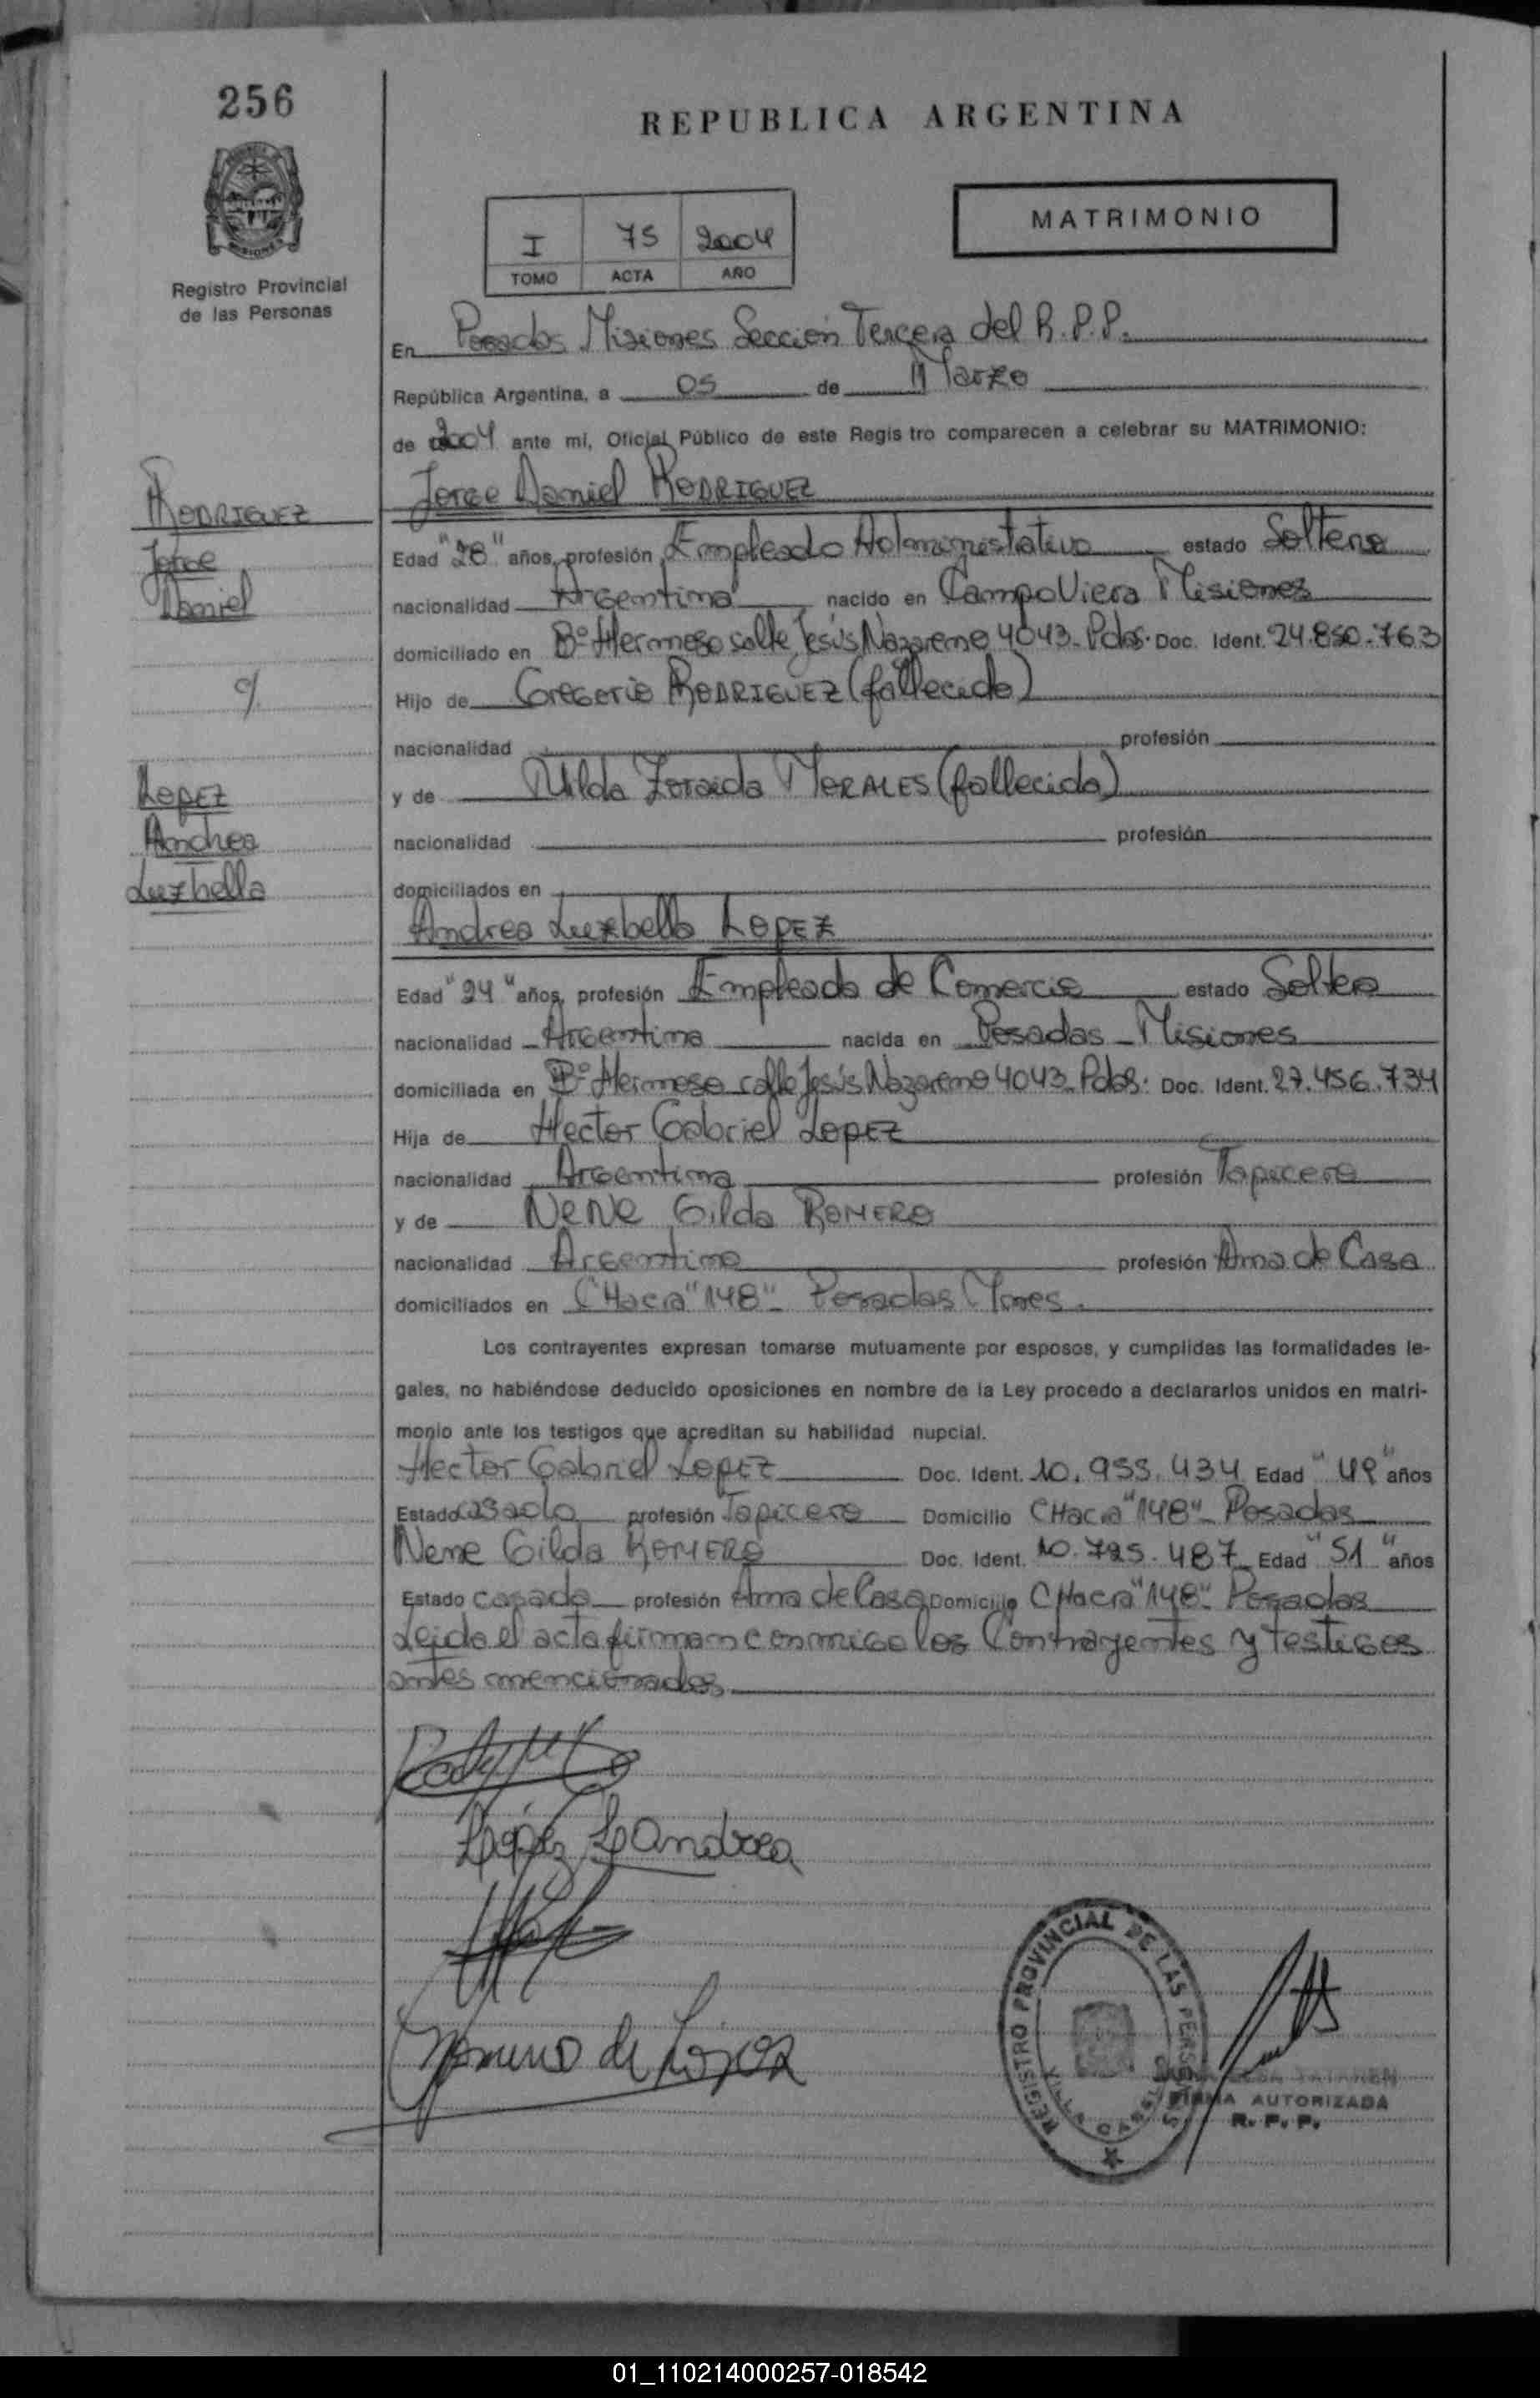 256
REPUBLICA ARGENTINA
MATRIMONIO
I 75 2004
TOMO ACTA AÑO
Registro Provincial
de las Personas
En Posadas Misiones Sección Tercera del R.P.P.
República Argentina, a 05 de Marzo
de 2004 ante mi, Oficial Público de este Regis tro comparecen a celebrar su MATRIMONIO:
RODRIGUEZ
Jorge
Daniel
c/.
LOPEZ
Andrea
Luzbella
Jorge Daniel RODRIGUEZ
Edad "28" años, profesión Empleado Administrativo estado Soltero
nacionalidad Argentina nacido en Campo Viera Misiones
domiciliado en Bº Hermoso calle Jesús Nazareno 4043-Pdas. Doc. Ident. 24.850.763
Hijo de Gregorio RODRIGUEZ (fallecido)
nacionalidad profesión
y de Nilda Zoraida MORALES (fallecida)
nacionalidad profesión
domiciliados en
Andrea Luzbella LOPEZ
Edad "24" años, profesión Empleada de Comercio estado Soltera
nacionalidad Argentina nacida en Posadas - Misiones
domiciliada en Bº Hermoso calle Jesús Nazareno 4043-Pdas. Doc. Ident. 27.456.734
Hija de Hector Gabriel LOPEZ
nacionalidad Argentina profesión Tapicero
y de NeNe Gilda ROMERO
nacionalidad Argentina profesión Ama de Casa
domiciliados en CHacra "148" - Posadas Mnes.
Los contrayentes expresan tomarse mutuamente por esposos, y cumplidas las formalidades le-
gales, no habiéndose deducido oposiciones en nombre de la Ley procedo a declararlos unidos en matri-
monio ante los testigos que acreditan su habilidad nupcial.
Hector Gabriel LOPEZ Doc. Ident. 10.955.434 Edad "49" años
Estado casado profesión Tapicero Domicilio CHacra "148" - Posadas
Nene Gilda ROMERO Doc. Ident. 10.785.487 Edad "51" años
Estado casada profesión Ama de Casa Domicilio CHacra "148" - Posadas
Leida el acta firman conmigo los Contrayentes y testigos
antes mencionados
López L Andrea
Romero de López
REGISTRO PROVINCIAL DE LAS PERSONAS
VILLA
FIRMA AUTORIZADA
R. P. P.
01_110214000257-018542